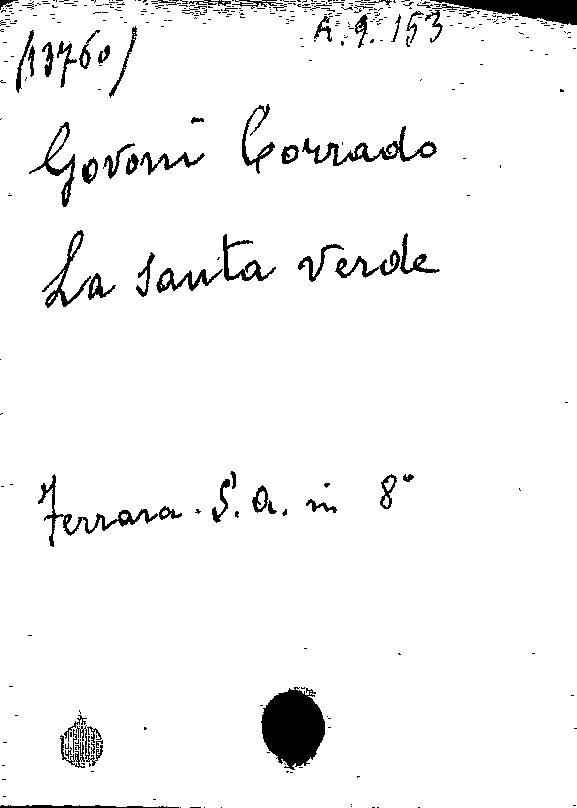 (13760) A.9.153
Govoni Corrado
La santa verde
Ferrara. S. a. in 8°